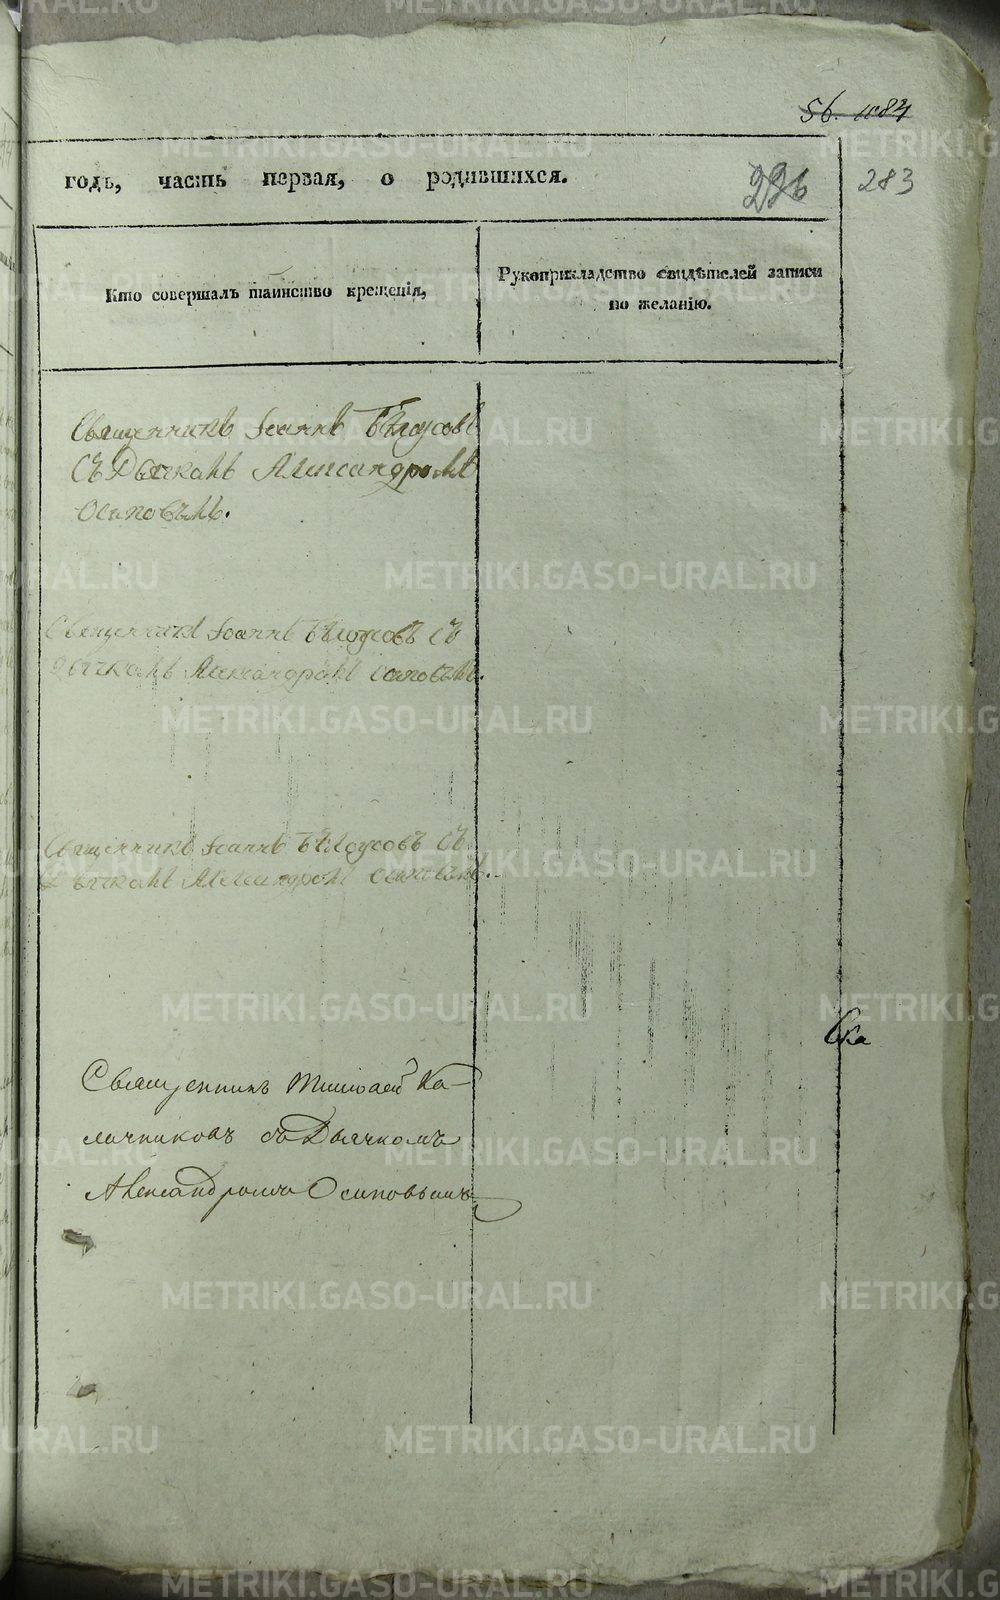 56.
283
годъ, часть первая, о родившихся.
Кто совершалъ таинство крещенія,
Рукоприкладство свидѣтелей записи
по желанію.
Священникъ Іоаннъ Бѣлоусовъ
съ Дьячкомъ Александромъ
Осиповымъ.
Священникъ Іоаннъ Бѣлоусовъ съ
Дьячкомъ Александромъ Осиповымъ.
Священникъ Іоаннъ Бѣлоусовъ съ
Дьячкомъ Александромъ Осиповымъ.
Священникъ Ка-
личниковъ съ Дьячкомъ
Александромъ Осиповымъ
METRIKI.GASO-URAL.RU